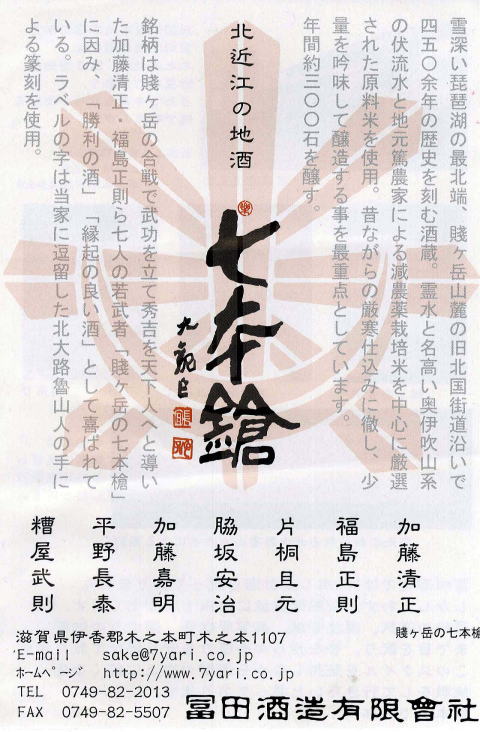 雪深い琵琶湖の最北端、賤ヶ岳山麓の旧北国街道沿いで
四五〇余年の歴史を刻む酒蔵。霊水と名高い奥伊吹山系
の伏流水と地元篤農家による減農薬栽培米を中心に厳選
された原料米を使用。昔ながらの厳寒仕込みに徹し、少
量を吟味して醸造する事を最重点としています。
年間約三〇〇石を醸す。
北近江の地酒
七本鎗
銘柄は賤ヶ岳の合戦で武功を立て秀吉を天下人へと導い
た加藤清正・福島正則ら七人の若武者「賤ヶ岳の七本槍」
に因み、「勝利の酒」「縁起の良い酒」として喜ばれて
いる。ラベルの字は当家に逗留した北大路魯山人の手に
よる篆刻を使用。
加藤清正
福島正則
片桐且元
脇坂安治
加藤嘉明
平野長泰
糟屋武則
賤ヶ岳の七本槍
滋賀県伊香郡木之本町木之本1107
E-mail sake@7yari.co.jp
ﾎｰﾑﾍﾟｰｼﾞ http://www.7yari.co.jp
TEL 0749-82-2013
FAX 0749-82-5507
冨田酒造有限會社